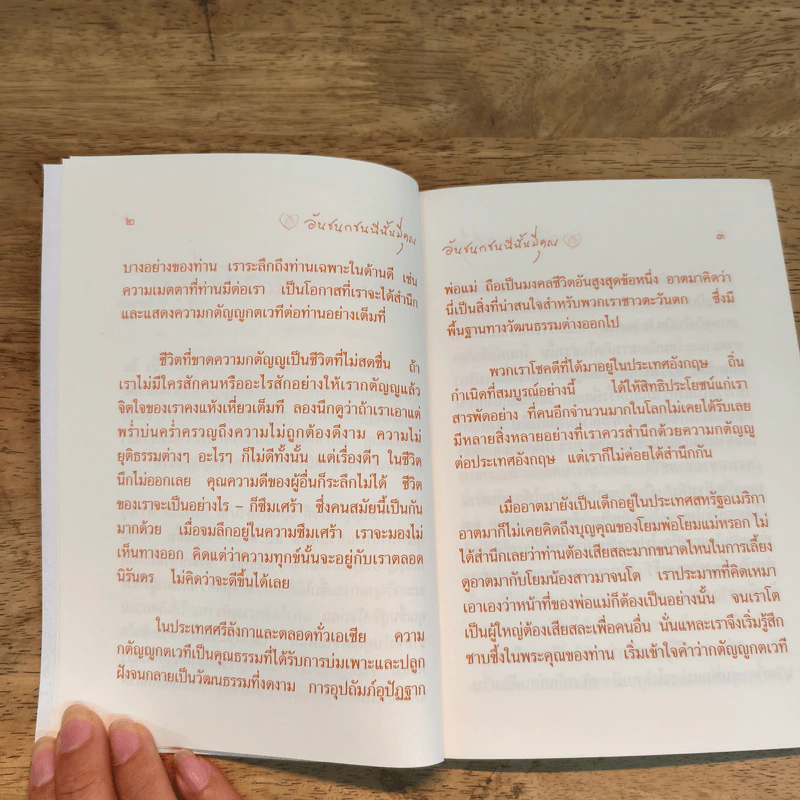 ๒
อันชนกชนนีนั้นมีคุณ
บางอย่างของท่าน เราระลึกถึงท่านเฉพาะในด้านดี เช่น
ความเมตตาที่ท่านมีต่อเรา เป็นโอกาสที่เราจะได้สำนึก
และแสดงความกตัญญูกตเวทีต่อท่านอย่างเต็มที่
ชีวิตที่ขาดความกตัญญูเป็นชีวิตที่ไม่สดชื่น ถ้า
เราไม่มีใครสักคนหรืออะไรสักอย่างให้เรากตัญญูแล้ว
จิตใจของเราคงแห้งเหี่ยวเต็มที ลองนึกดูว่าถ้าเราเอาแต่
พร่ำบ่นคร่ำครวญถึงความไม่ถูกต้องดีงาม ความไม่
ยุติธรรมต่างๆ อะไรๆ ก็ไม่ดีทั้งนั้น แต่เรื่องดีๆ ในชีวิต
นึกไม่ออกเลย คุณความดีของผู้อื่นก็ระลึกไม่ได้ ชีวิต
ของเราจะเป็นอย่างไร – ก็ซึมเศร้า ซึ่งคนสมัยนี้เป็นกัน
มากด้วย เมื่อจมลึกอยู่ในความซึมเศร้า เราจะมองไม่
เห็นทางออก คิดแต่ว่าความทุกข์นั้นจะอยู่กับเราตลอด
นิรันดร ไม่คิดว่าจะดีขึ้นได้เลย
ในประเทศศรีลังกาและตลอดทั่วเอเชีย ความ
กตัญญูกตเวทีเป็นคุณธรรมที่ได้รับการบ่มเพาะและปลูก
ฝังจนกลายเป็นวัฒนธรรมที่งดงาม การอุปถัมภ์อุปัฏฐาก
อันชนกชนนีนั้นมีคุณ
๓
พ่อแม่ ถือเป็นมงคลชีวิตอันสูงสุดข้อหนึ่ง อาตมาคิดว่า
นี่เป็นสิ่งที่น่าสนใจสำหรับพวกเราชาวตะวันตก ซึ่งมี
พื้นฐานทางวัฒนธรรมต่างออกไป
พวกเราโชคดีที่ได้มาอยู่ในประเทศอังกฤษ ถิ่น
กำเนิดที่สมบูรณ์อย่างนี้ ได้ให้สิทธิประโยชน์แก่เรา
สารพัดอย่าง ที่คนอีกจำนวนมากในโลกไม่เคยได้รับเลย
มีหลายสิ่งหลายอย่างที่เราควรสำนึกด้วยความกตัญญู
ต่อประเทศอังกฤษ แต่เราก็ไม่ค่อยได้สำนึกกัน
เมื่ออาตมายังเป็นเด็กอยู่ในประเทศสหรัฐอเมริกา
อาตมาก็ไม่เคยคิดถึงบุญคุณของโยมพ่อโยมแม่หรอก ไม่
ได้สำนึกเลยว่าท่านต้องเสียสละมากขนาดไหนในการเลี้ยง
ดูอาตมากับโยมน้องสาวมาจนโต เราประมาทที่คิดเหมา
เอาเองว่าหน้าที่ของพ่อแม่ก็ต้องเป็นอย่างนั้น จนเราโต
เป็นผู้ใหญ่ต้องเสียสละเพื่อคนอื่น นั่นแหละเราจึงเริ่มรู้สึก
ซาบซึ้งในพระคุณของท่าน เริ่มเข้าใจคำว่ากตัญญูกตเวที